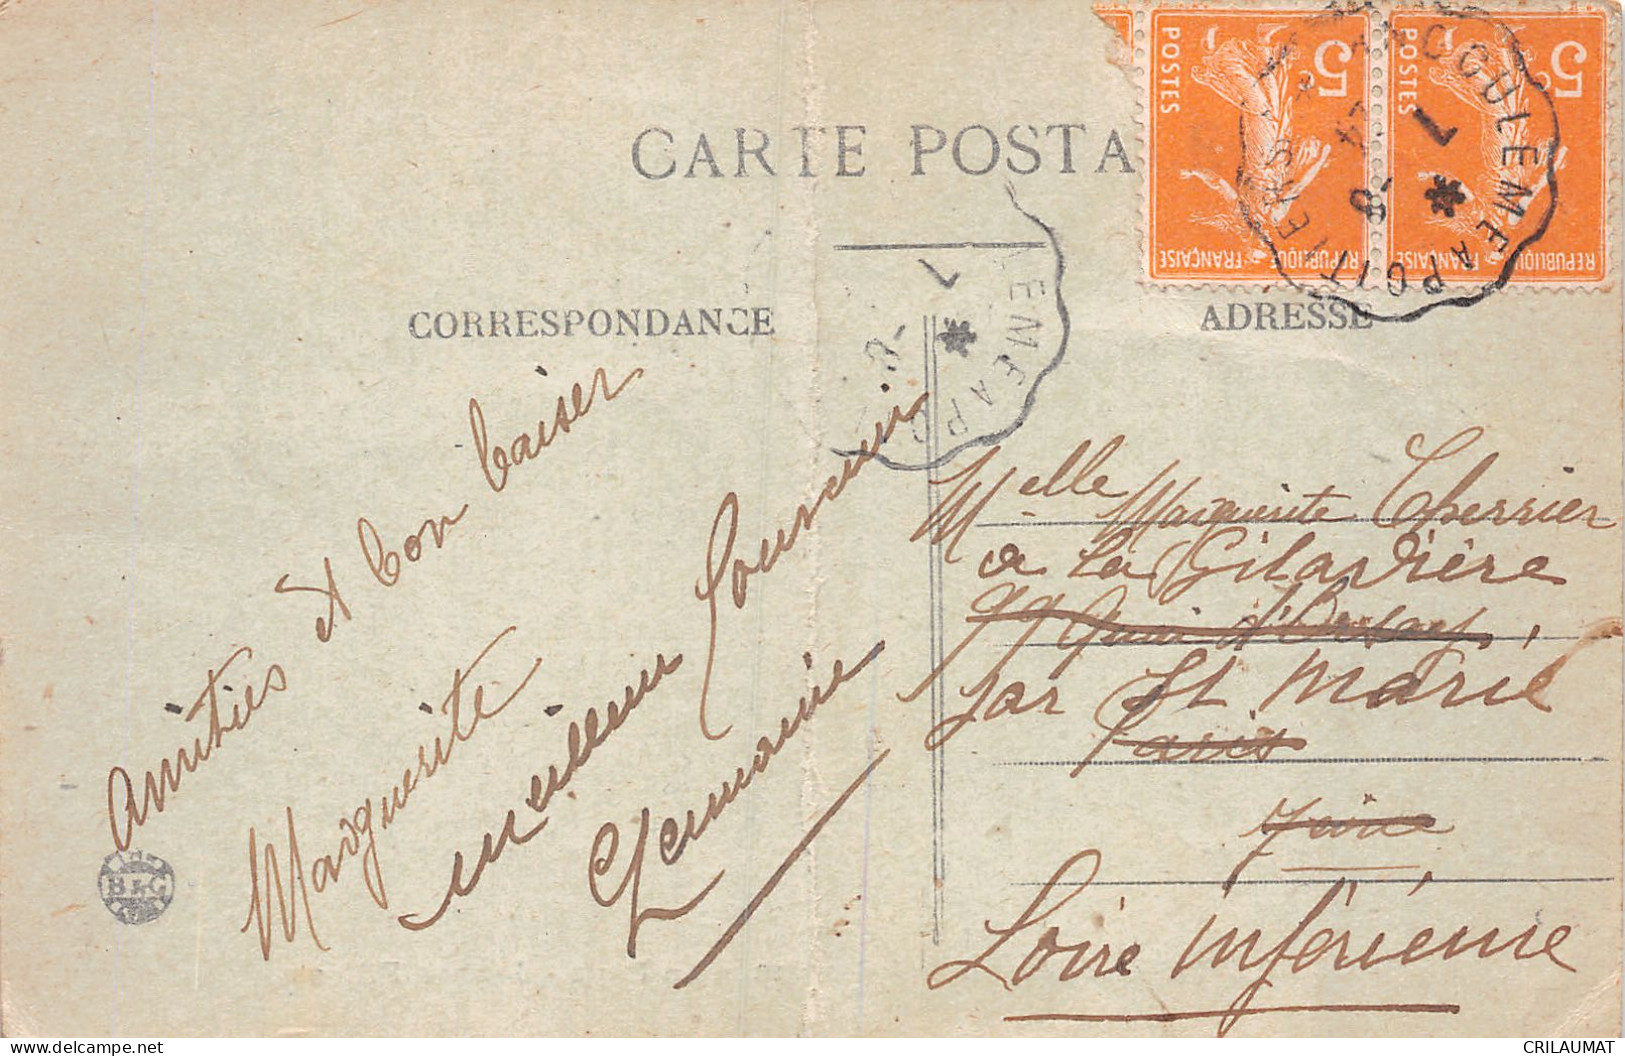 CARTE POSTA
CORRESPONDANCE
ADRESSE
5c POSTES REPUBLIQUE FRANÇAISE
5c POSTES REPUBLIQUE FRANÇAISE
ANGOULEME A POITIERS
7 * 8 - 24
LEME A PO
7 * 8 -
Amitiés et bon baiser
Marguerite
meilleur souvenir
Germaine
Melle Marguerite Cherrier
a la Gilardière
99 Quai d'Orsay
par St Marie
Paris
Loire inférieure
B & G
CRILAUMAT